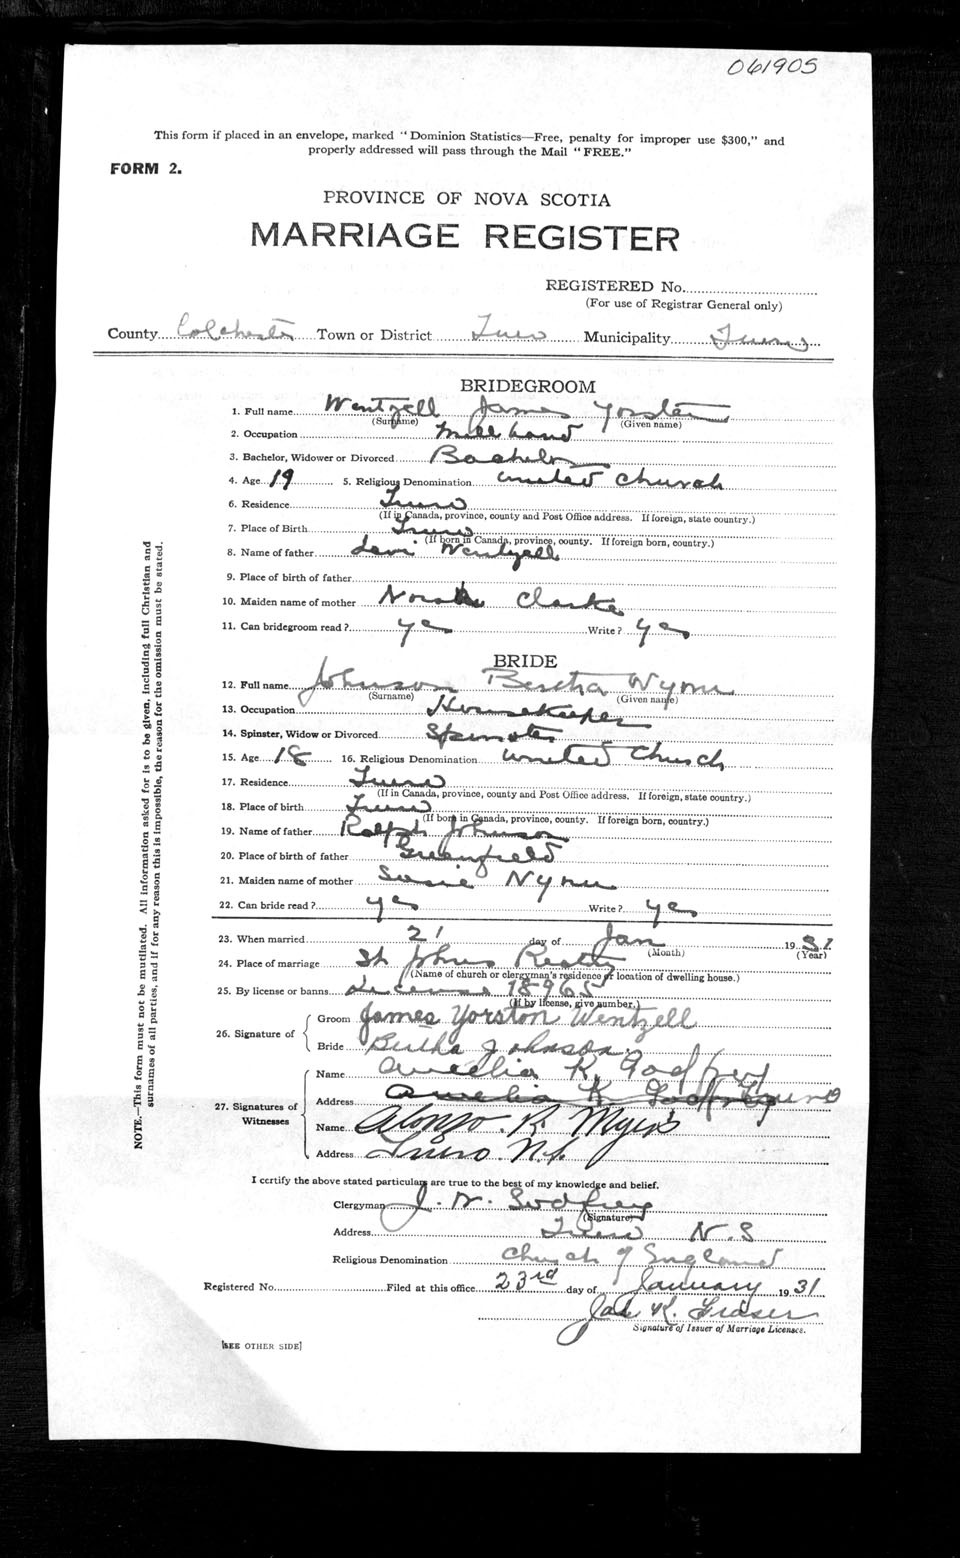 061905
This form if placed in an envelope, marked "Dominion Statistics—Free, penalty for improper use $300," and
properly addressed will pass through the Mail "FREE."
FORM 2.
PROVINCE OF NOVA SCOTIA
MARRIAGE REGISTER
REGISTERED No.
(For use of Registrar General only)
County Colchester Town or District Truro Municipality Truro
BRIDEGROOM
1. Full name Wentzell James Yorston
(Surname) (Given name)
2. Occupation Mill hand
3. Bachelor, Widower or Divorced Bachelor
4. Age 19 5. Religious Denomination United Church
6. Residence Truro
(If in Canada, province, county and Post Office address. If foreign, state country.)
7. Place of Birth Truro
(If born in Canada, province, county. If foreign born, country.)
8. Name of father Levi Wentzell
9. Place of birth of father
10. Maiden name of mother Clarke
11. Can bridegroom read? yes Write? yes
BRIDE
12. Full name Johnson Bertha Nyma
(Surname) (Given name)
13. Occupation Housekeeper
14. Spinster, Widow or Divorced Spinster
15. Age 18 16. Religious Denomination United Church
17. Residence Truro
(If in Canada, province, county and Post Office address. If foreign, state country.)
18. Place of birth Truro
(If born in Canada, province, county. If foreign born, country.)
19. Name of father Ralph Johnson
20. Place of birth of father Greenfield
21. Maiden name of mother Susie
22. Can bride read? yes Write? yes
23. When married 21 day of Jan 1931
(Month) (Year)
24. Place of marriage St Johns Rectory
(Name of church or clergyman's residence or location of dwelling house.)
25. By license or banns License 18965
(If by license, give number.)
26. Signature of
Groom James Yorston Wentzell
Bride Bertha Johnson
27. Signatures of Witnesses
Name Amelia K. Godfrey
Address Amelia K. Godfrey Truro
Name Alonzo R. Myers
Address Truro N.S.
I certify the above stated particulars are true to the best of my knowledge and belief.
Clergyman J. W. Godfrey
(Signature)
Address Truro N.S
Religious Denomination Church of England
Registered No. Filed at this office 23rd day of January 1931
Jas K. Fraser
Signature of Issuer of Marriage Licenses.
[SEE OTHER SIDE]
NOTE.—This form must not be mutilated. All information asked for is to be given, including full Christian and
surnames of all parties, and if for any reason this is impossible, the reason for the omission must be stated.